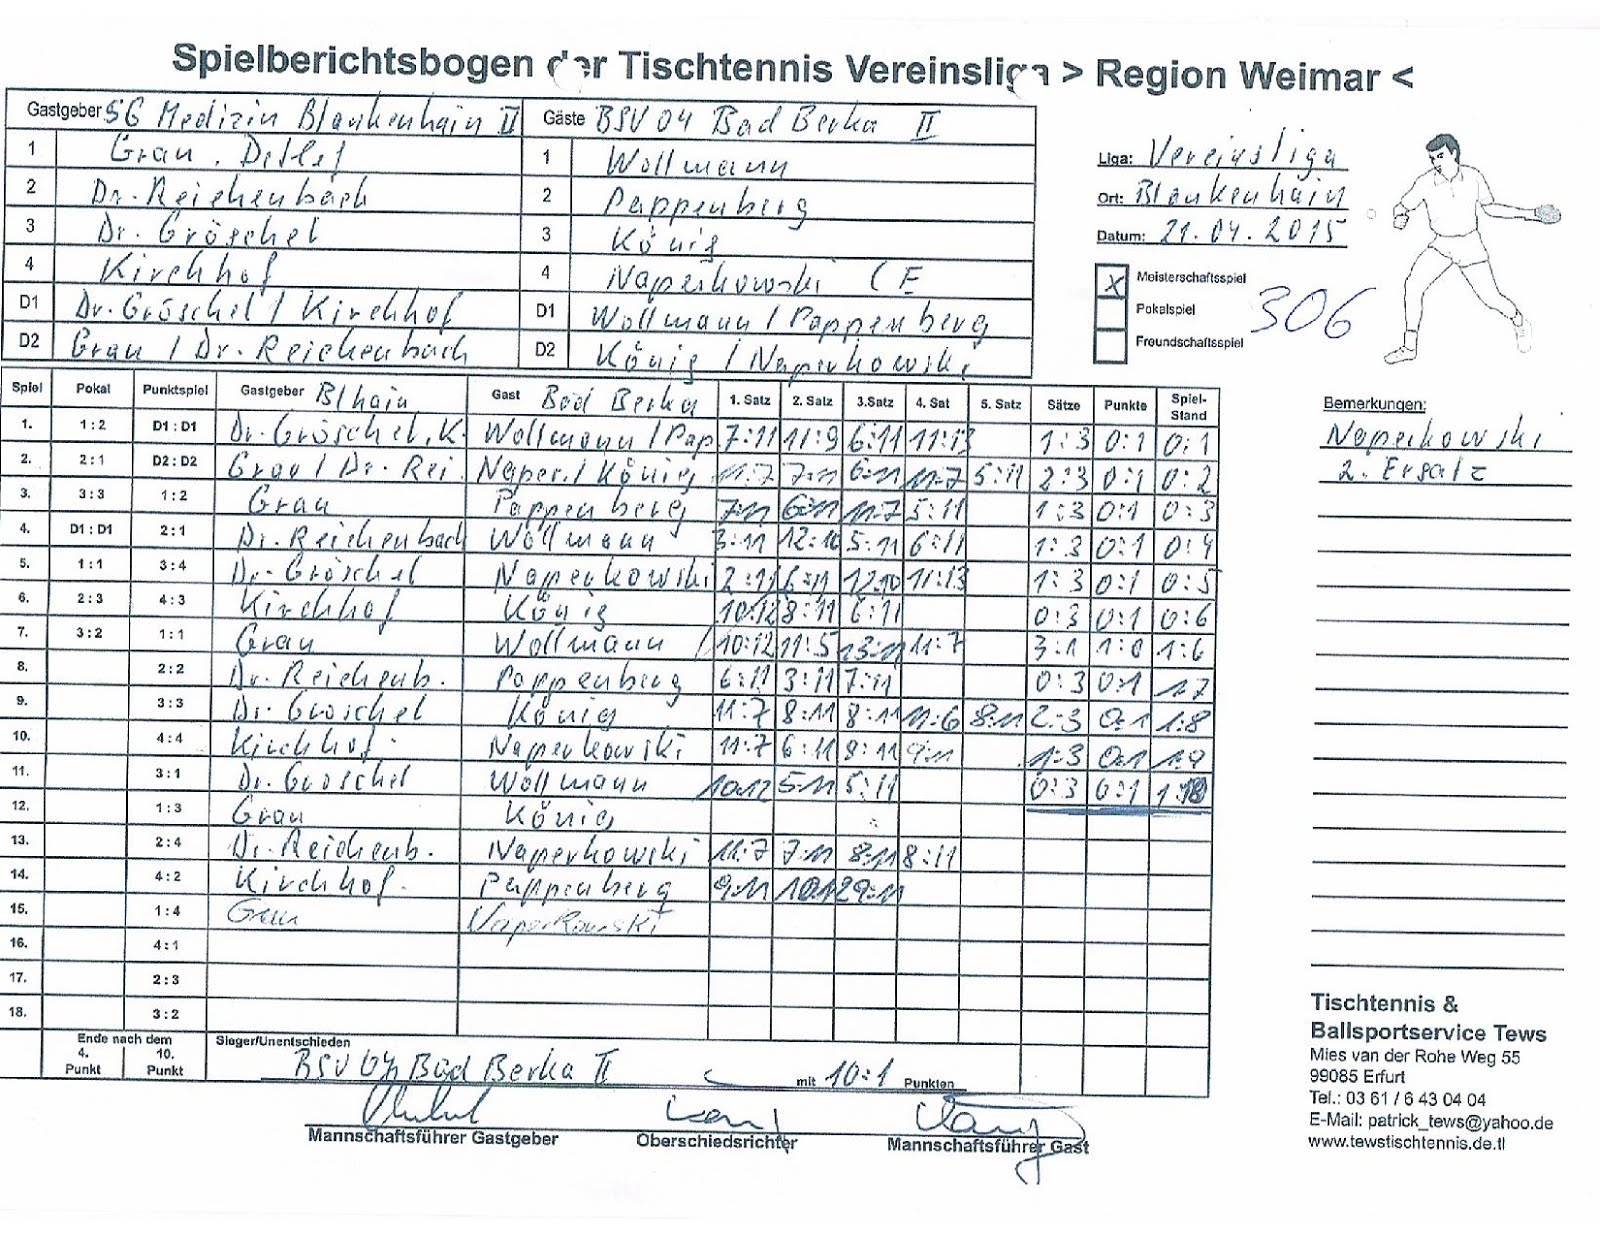 Spielberichtsbogen der Tischtennis Vereinsliga > Region Weimar <
Gastgeber SG Medizin Blankenhain II Gäste BSV 04 Bad Berka II
1 Grau, Detlef 1 Wollmann
2 Dr. Reichenbach 2 Pappenberg
3 Dr. Gröschel 3 König
4 Kirchhof 4 Naperkowski (E
D1 Dr. Gröschel / Kirchhof D1 Wollmann / Pappenberg
D2 Grau / Dr. Reichenbach D2 König / Naperkowski
Liga: Vereinsliga
Ort: Blankenhain
Datum: 21.04.2015
x Meisterschaftsspiel
Pokalspiel
Freundschaftsspiel
306
Spiel Pokal Punktspiel Gastgeber Blhain Gast Bad Berka 1. Satz 2. Satz 3.Satz 4. Sat 5. Satz Sätze Punkte Spiel-Stand
1. 1 : 2 D1 : D1 Dr. Gröschel, K. Wollmann / Pap. 7:11 11:9 6:11 11:13 1:3 0:1 0:1
2. 2 : 1 D2 : D2 Grau / Dr. Rei. Naper. / König 11:7 7:11 6:11 11:7 5:11 2:3 0:1 0:2
3. 3 : 3 1 : 2 Grau Pappenberg 7:11 6:11 11:7 5:11 1:3 0:1 0:3
4. D1 : D1 2 : 1 Dr. Reichenbach Wollmann 3:11 12:10 5:11 6:11 1:3 0:1 0:4
5. 1 : 1 3 : 4 Dr. Gröschel Naperkowski 2:11 6:11 12:10 11:13 1:3 0:1 0:5
6. 2 : 3 4 : 3 Kirchhof König 10:12 8:11 6:11 0:3 0:1 0:6
7. 3 : 2 1 : 1 Grau Wollmann 10:12 11:5 13:11 11:7 3:1 1:0 1:6
8. 2 : 2 Dr. Reichenb. Pappenberg 6:11 3:11 7:11 0:3 0:1 1:7
9. 3 : 3 Dr. Gröschel König 11:7 8:11 8:11 11:6 8:11 2:3 0:1 1:8
10. 4 : 4 Kirchhof. Naperkowski 11:7 6:11 8:11 9:11 1:3 0:1 1:9
11. 3 : 1 Dr. Gröschel Wollmann 10:12 5:11 5:11 0:3 0:1 1:10
12. 1 : 3 Grau König
13. 2 : 4 Dr. Reichenb. Naperkowski 11:7 7:11 8:11 8:11
14. 4 : 2 Kirchhof. Pappenberg 9:11 10:12 9:11
15. 1 : 4 Grau Naperkowski
16. 4 : 1
17. 2 : 3
18. 3 : 2
Ende nach dem
4. Punkt 10. Punkt
Sieger/Unentschieden
BSV 04 Bad Berka II mit 10:1 Punkten
Mannschaftsführer Gastgeber Oberschiedsrichter Mannschaftsführer Gast
Bemerkungen:
Naperkowski
2. Ersatz
Tischtennis &
Ballsportservice Tews
Mies van der Rohe Weg 55
99085 Erfurt
Tel.: 03 61 / 6 43 04 04
E-Mail: patrick_tews@yahoo.de
www.tewstischtennis.de.tl